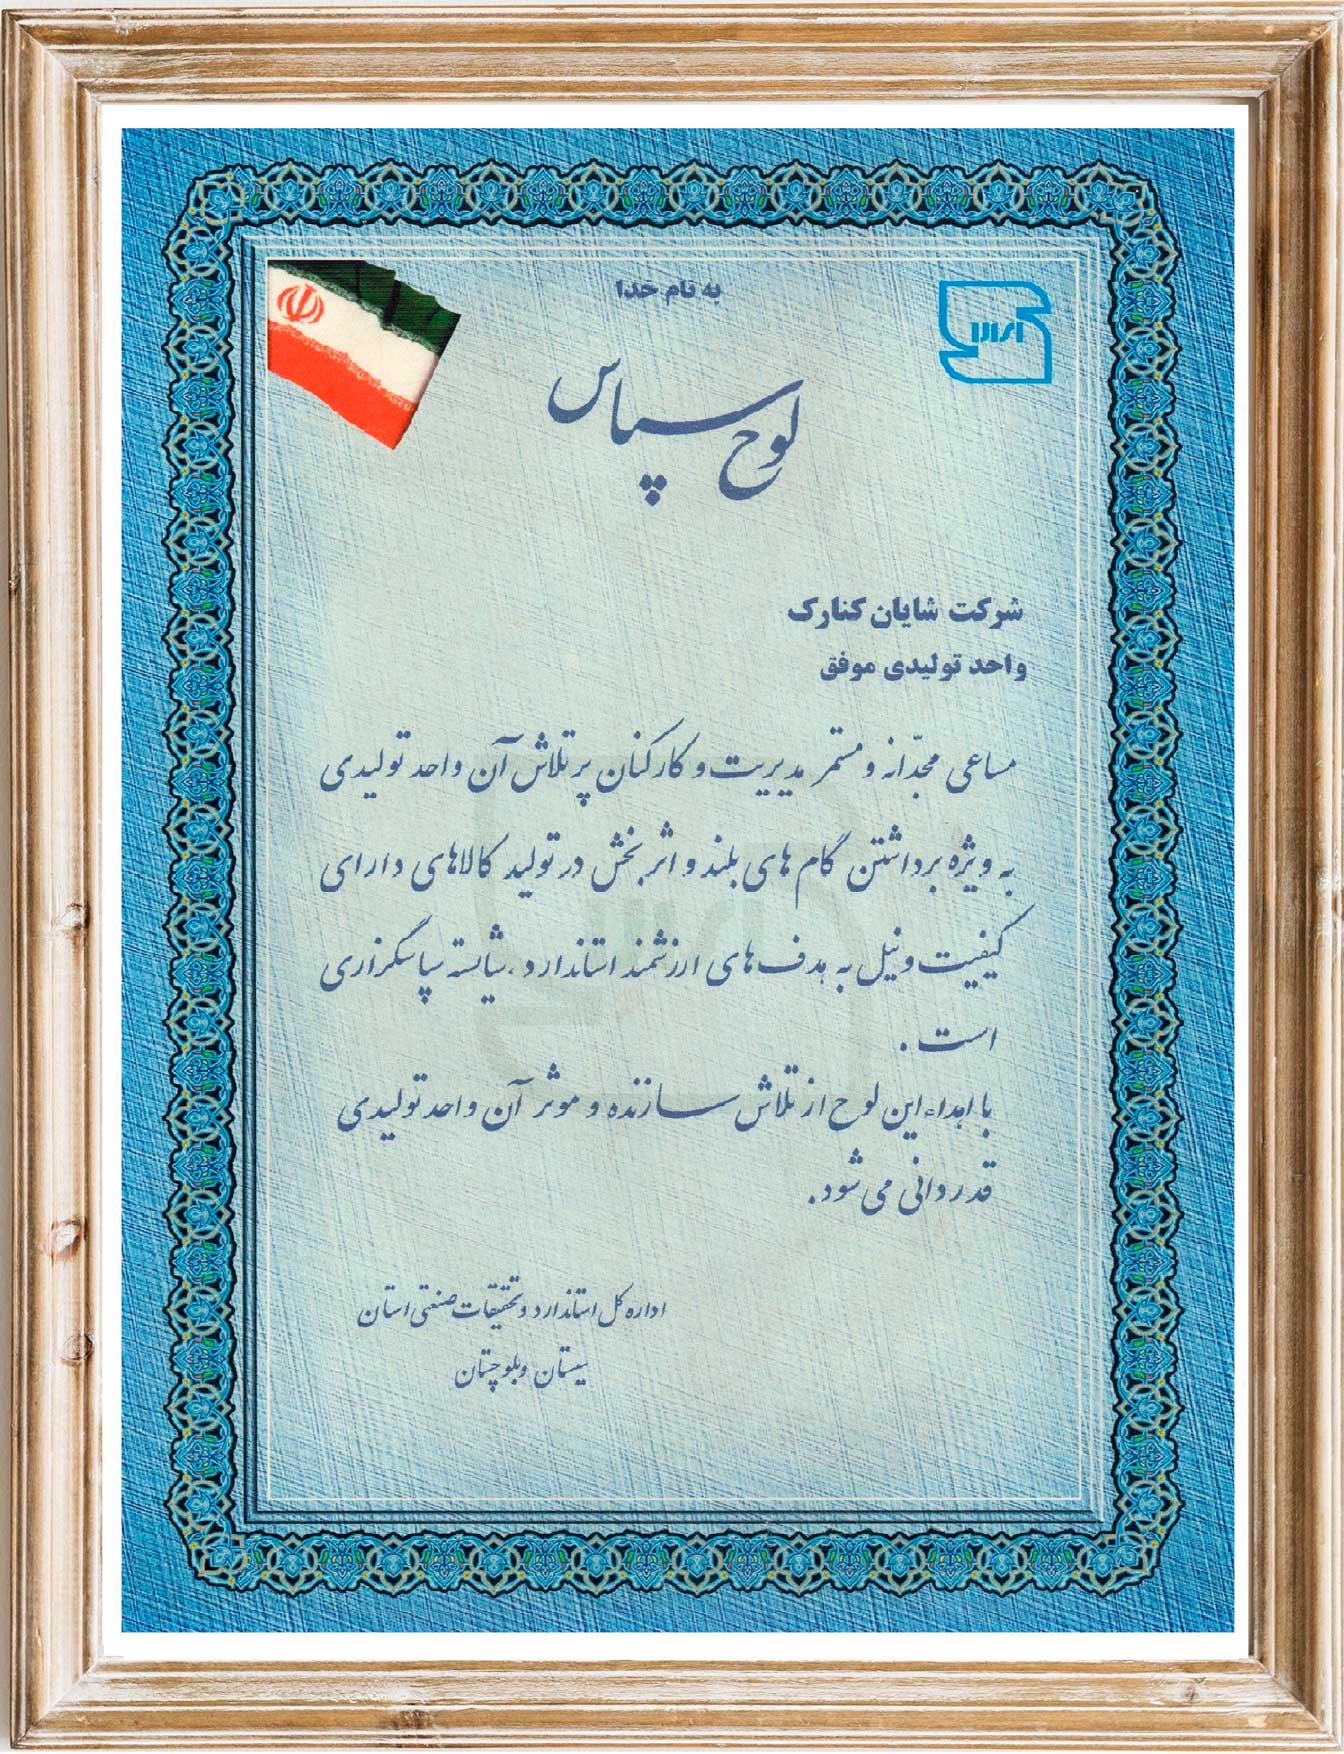 به نام خدا
لوح سپاس
شرکت شایان کنارک
واحد تولیدی موفق
مساعی مجدّانه و مستمر مدیریت و کارکنان پرتلاش آن واحد تولیدی
به ویژه برداشتن گام های بلند و اثر بخش در تولید کالاهای دارای
کیفیت و نیل به هدف های ارزشمند استاندارد ، شایسته سپاسگزاری
است .
با اهداء این لوح از تلاش سازنده و موثر آن واحد تولیدی
قدردانی می شود.
اداره کل استاندارد و تحقیقات صنعتی استان
سیستان و بلوچستان